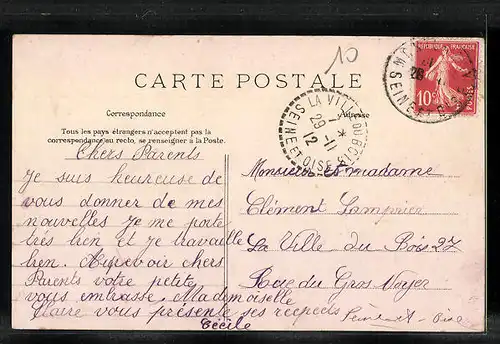 10
CARTE POSTALE
RÉPUBLIQUE FRANÇAISE
10c
POSTES
SEINE ET OISE
LA VILLE DU BOIS
1 *
29 -11
12
SEINE ET OISE
Correspondance
Adresse
Tous les pays étrangers n'acceptent pas la
correspondance au recto, se renseigner à la Poste.
Chers Parents
Je suis heureuse de
vous donner de mes
nouvelles Je me porte
très bien et je travaille
bien. Aurevoir chers
Parents votre petite
vous embrasse. Mademoiselle
Claire vous présente ses respects
Cécile
Monsieur et madame
Clément
La Ville du Bois 27
Rue du Gros Noyer
Seine et Oise